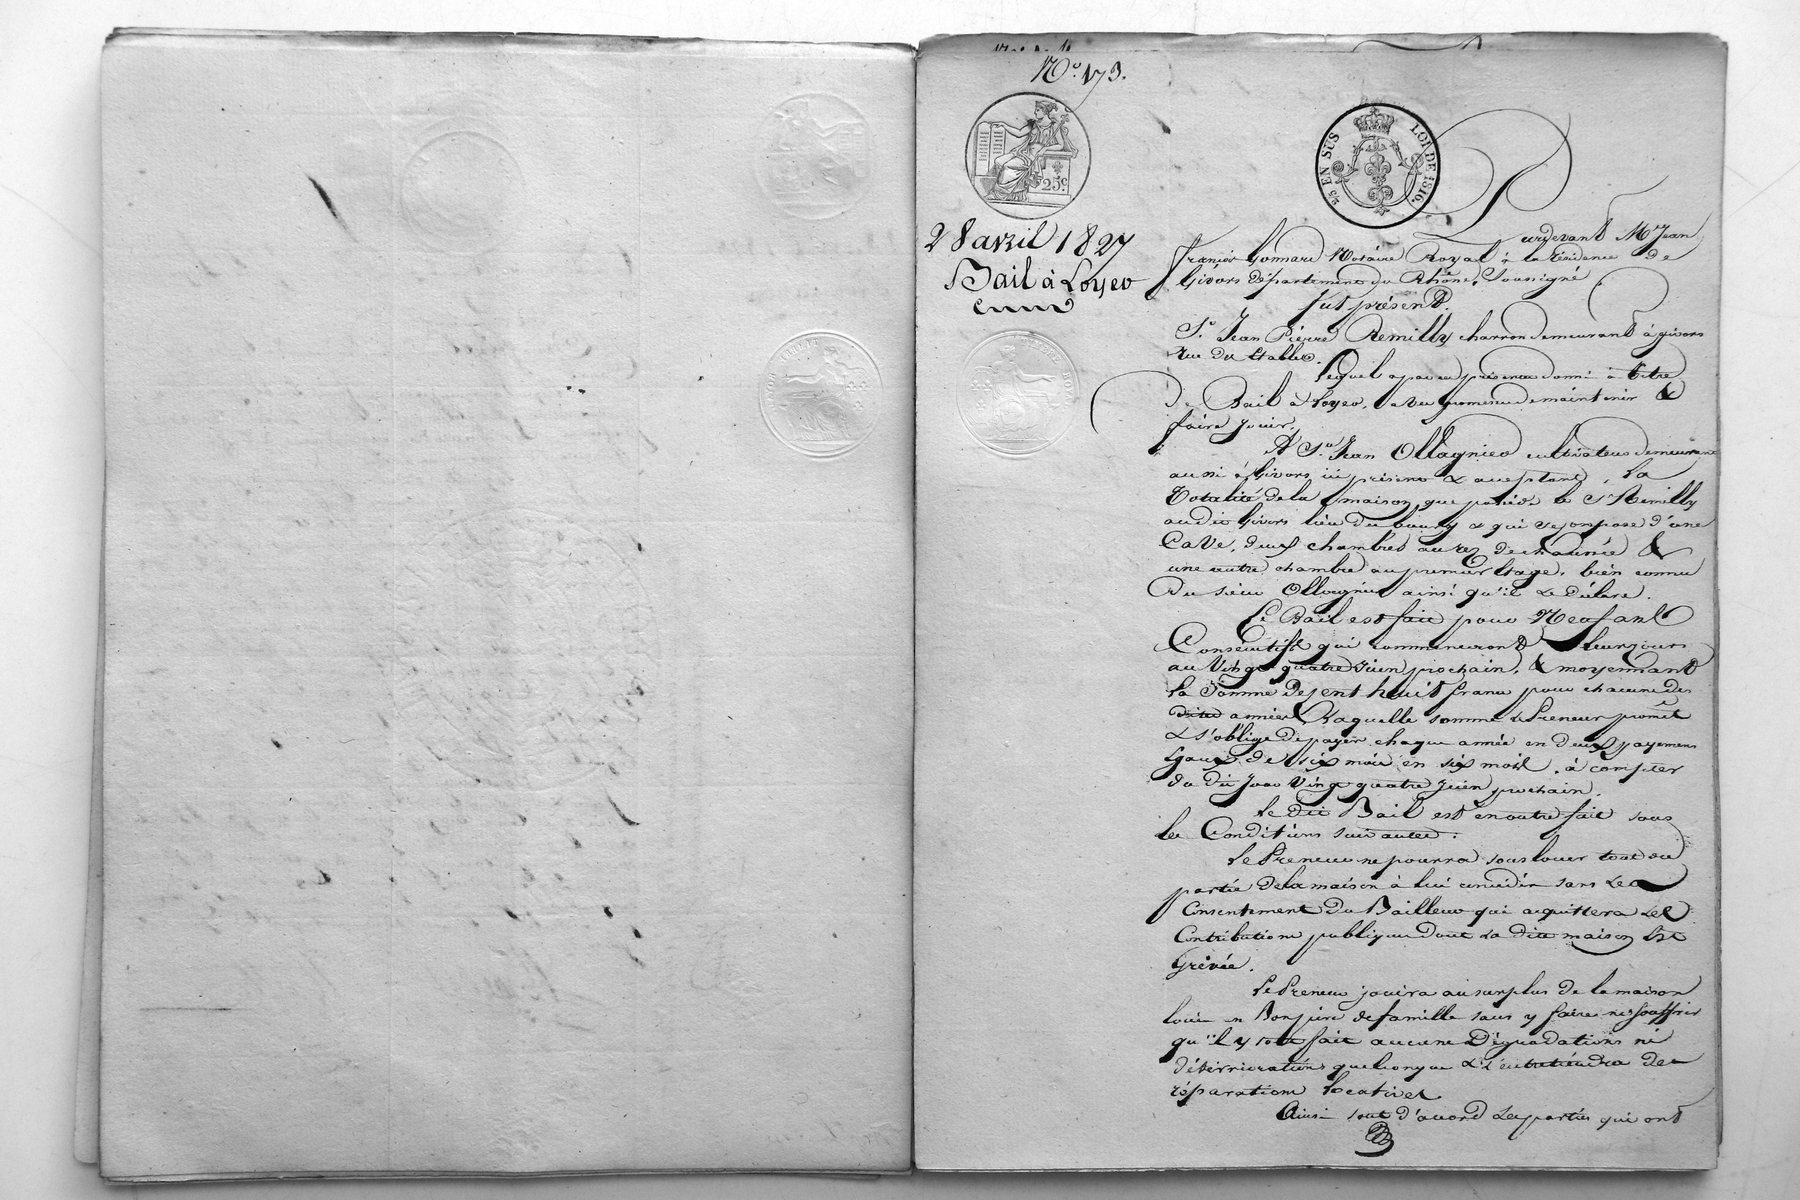 N.º 173.
25 EN SUS
LOI DE 1816.
25 c.
28 avril 1827
Bail à Loyer
Pardevant Me Jean
françois Gonnard Notaire Royal à la résidence de
Givors département du Rhône, Soussigné
fut présent.
Sr Jean Pierre Remilly charron demeurant à givors
rue du
Lequel a par ces présentes donné à titre
de Bail à Loyer, avec promesse de maintenir &
faire jouir,
A Sr Jean Ollagnier cultivateur demeurant
aussi à Givors ici présent & acceptant, la
Totalité de la maison que possède le Sr Remilly
audit Givors lieu du bourg & qui se compose d'une
Cave, deux chambres au rez de chaussée &
une autre chambre au premier Etage, bien connu
du sieur Ollagnier ainsi qu'il Le Déclare.
Le Bail est fait pour Neuf ans
Consécutifs qui commenceront leur cours
au Vingt quatre Juin prochain, & moyennant
la Somme de cent huit francs pour chacune des
dites années Laquelle somme le Preneur promet
& s'oblige de payer chaque année en deux payemens
Egaux de six mois en six mois, à compter
du dit jour Vingt quatre Juin prochain.
Le dit Bail est en outre fait sous
les Conditions suivantes.
Le Preneur ne pourra sous louer tout ou
partie de la maison à lui concédée sans Le
Consentement du Bailleur qui acquittera Les
Contributions publiques dont La dite maison Est
Grévée.
Le Preneur jouira au surplus de la maison
louée en Bon père de famille sans y faire ni souffrir
qu'il y soit fait aucune Dégradations ni
détérriorations quelconque & s'entretiendra des
réparations locatives
Ainsi sont d'accord Les parties qui ont